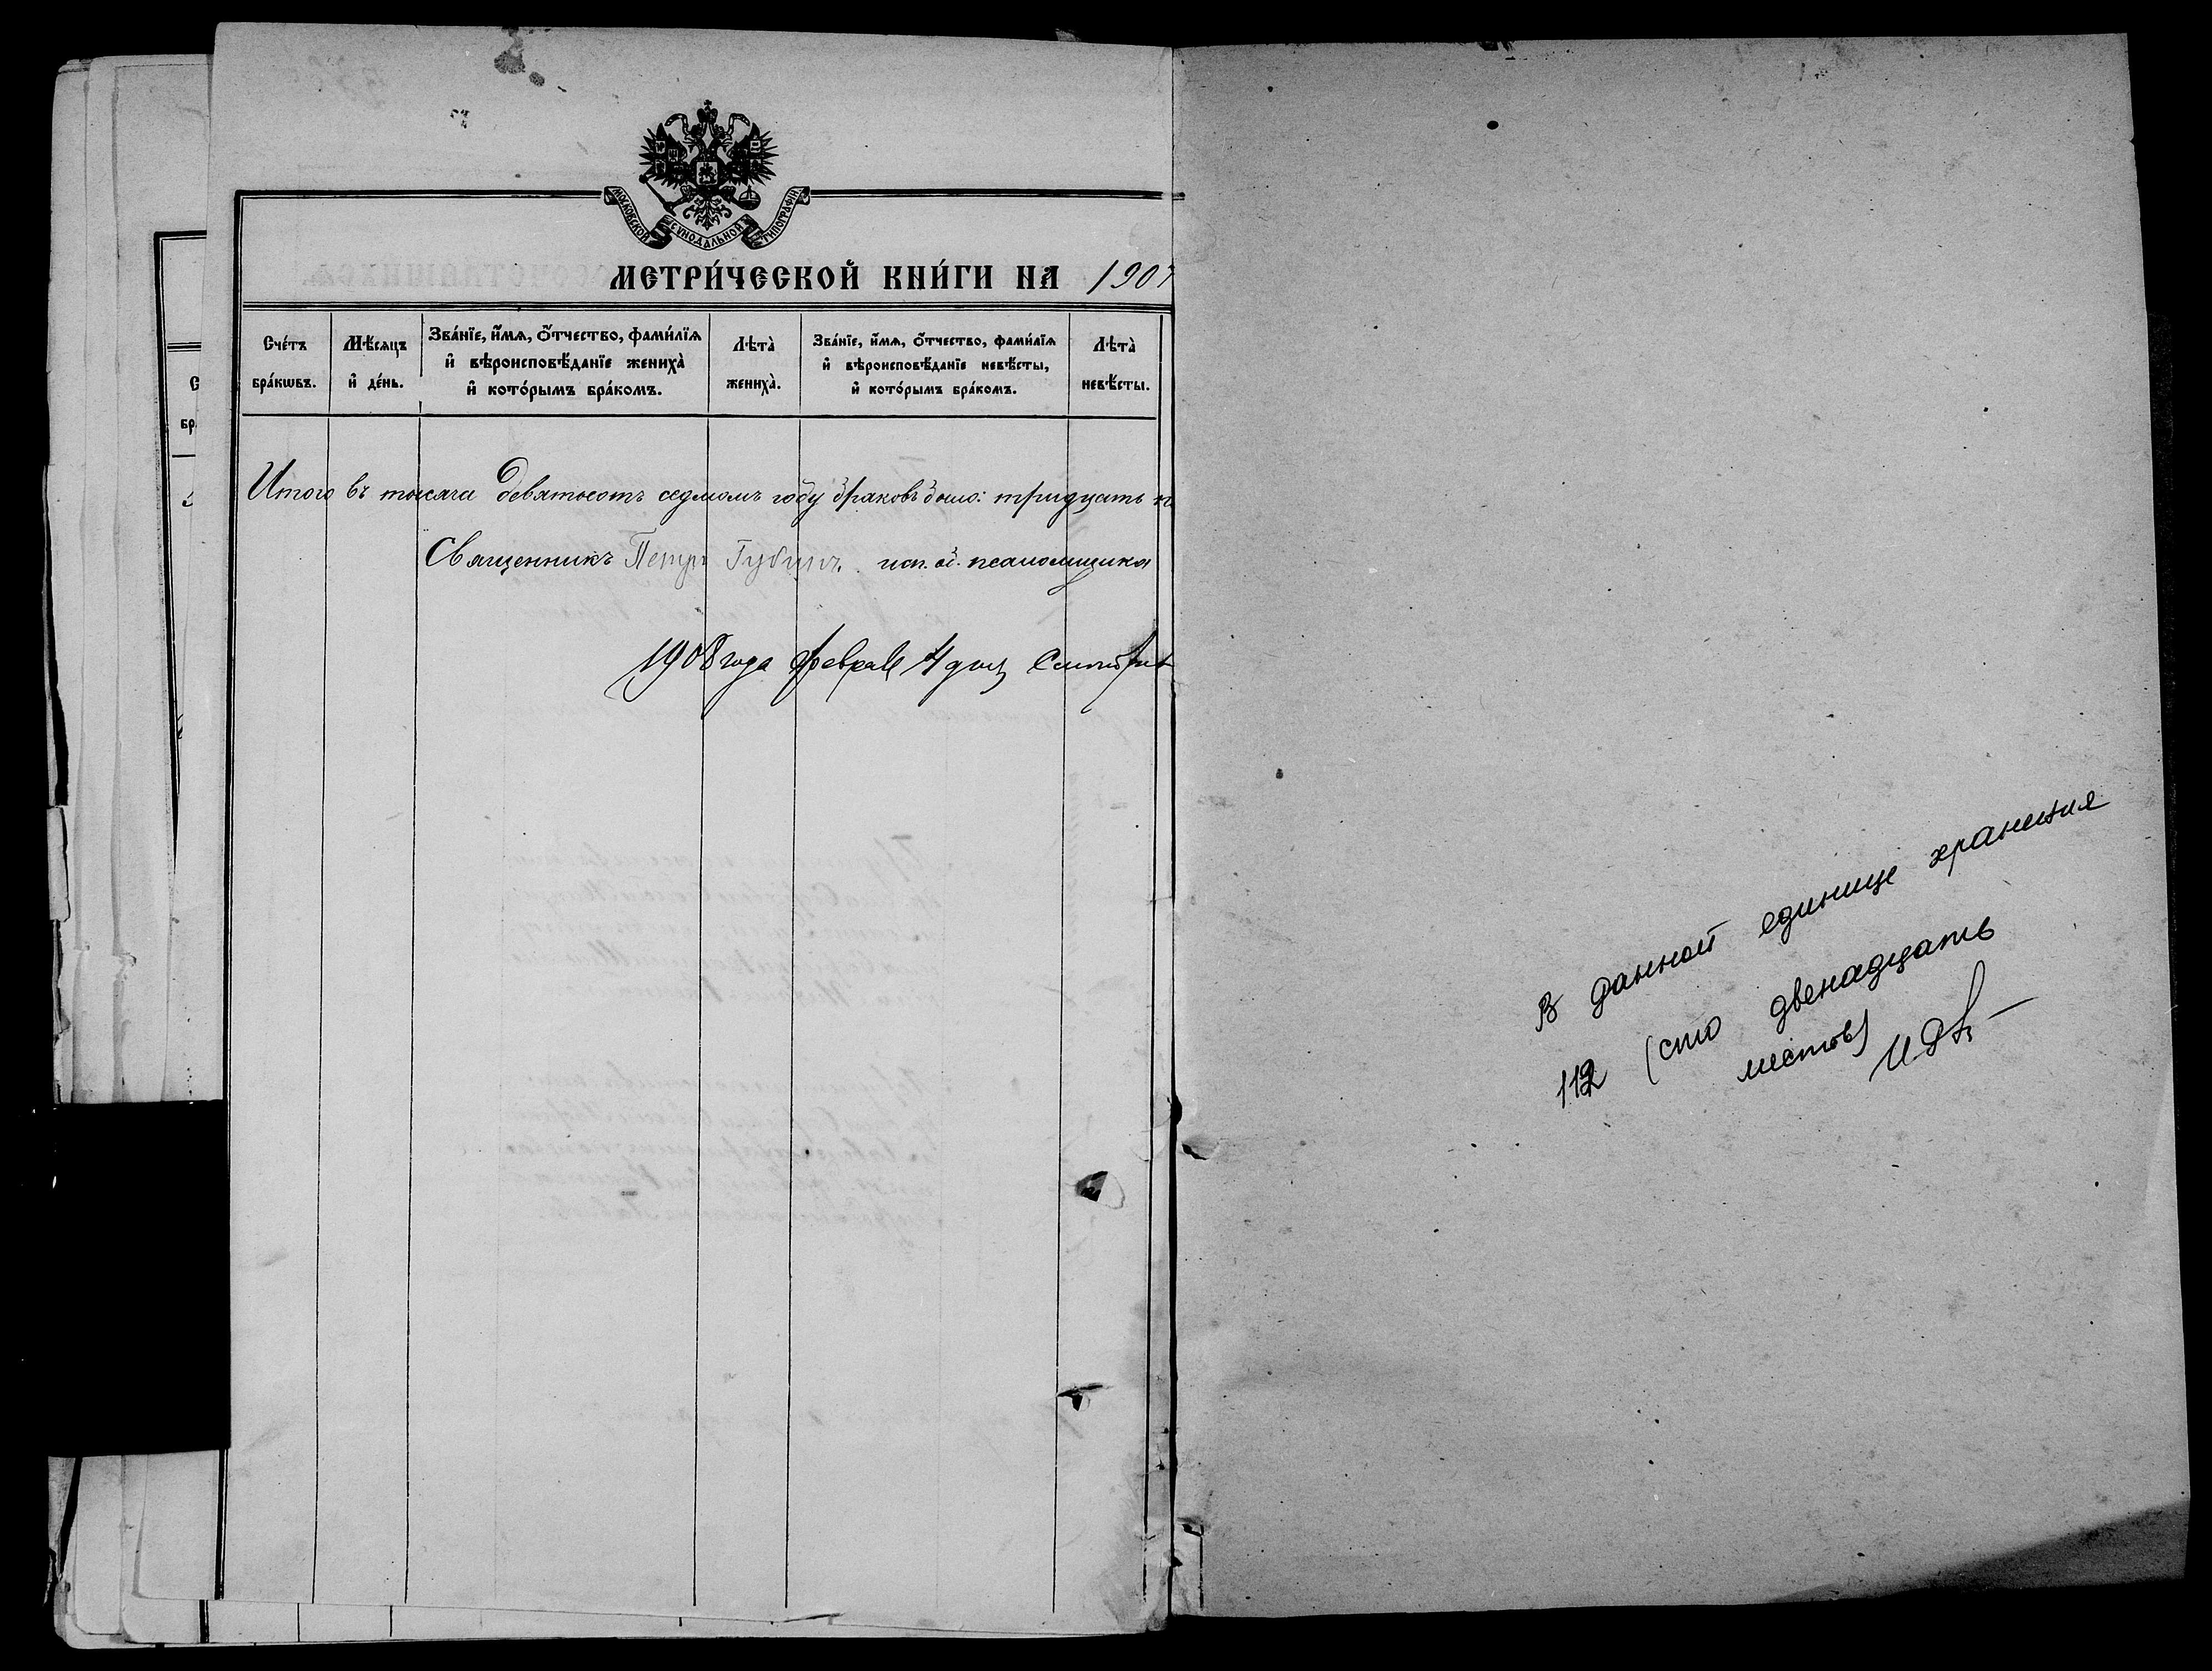 МОСКОВСКОЙ СѴНОДАЛЬНОЙ ТИПОГРАФІИ
МЕТРИ́ЧЕСКОЙ КНИ́ГИ НА 1907
Сче́тъ бра́кѡвъ.
Мѣ́сяцъ и҆ де́нь.
Зва́нїе, и҆́мѧ, ѻ҆́тчество, фами́лїѧ и҆ вѣроисповѣ́данїе жениха̀ и҆ кото́рымъ бра́комъ.
Лѣта̀ жениха̀.
Зва́нїе, и҆́мѧ, ѻ҆́тчество, фами́лїѧ и҆ вѣроисповѣ́данїе невѣ́сты, и҆ кото́рымъ бра́комъ.
Лѣта̀ невѣ́сты.
Итого въ тысяча девятьсотъ седмомъ году браковъ было: тридцать
Священникъ Петръ Губинъ. исп. об. псаломщика
1908 года февраля 4 дня
В данной единице хранения
112 (сто двенадцать
листов)